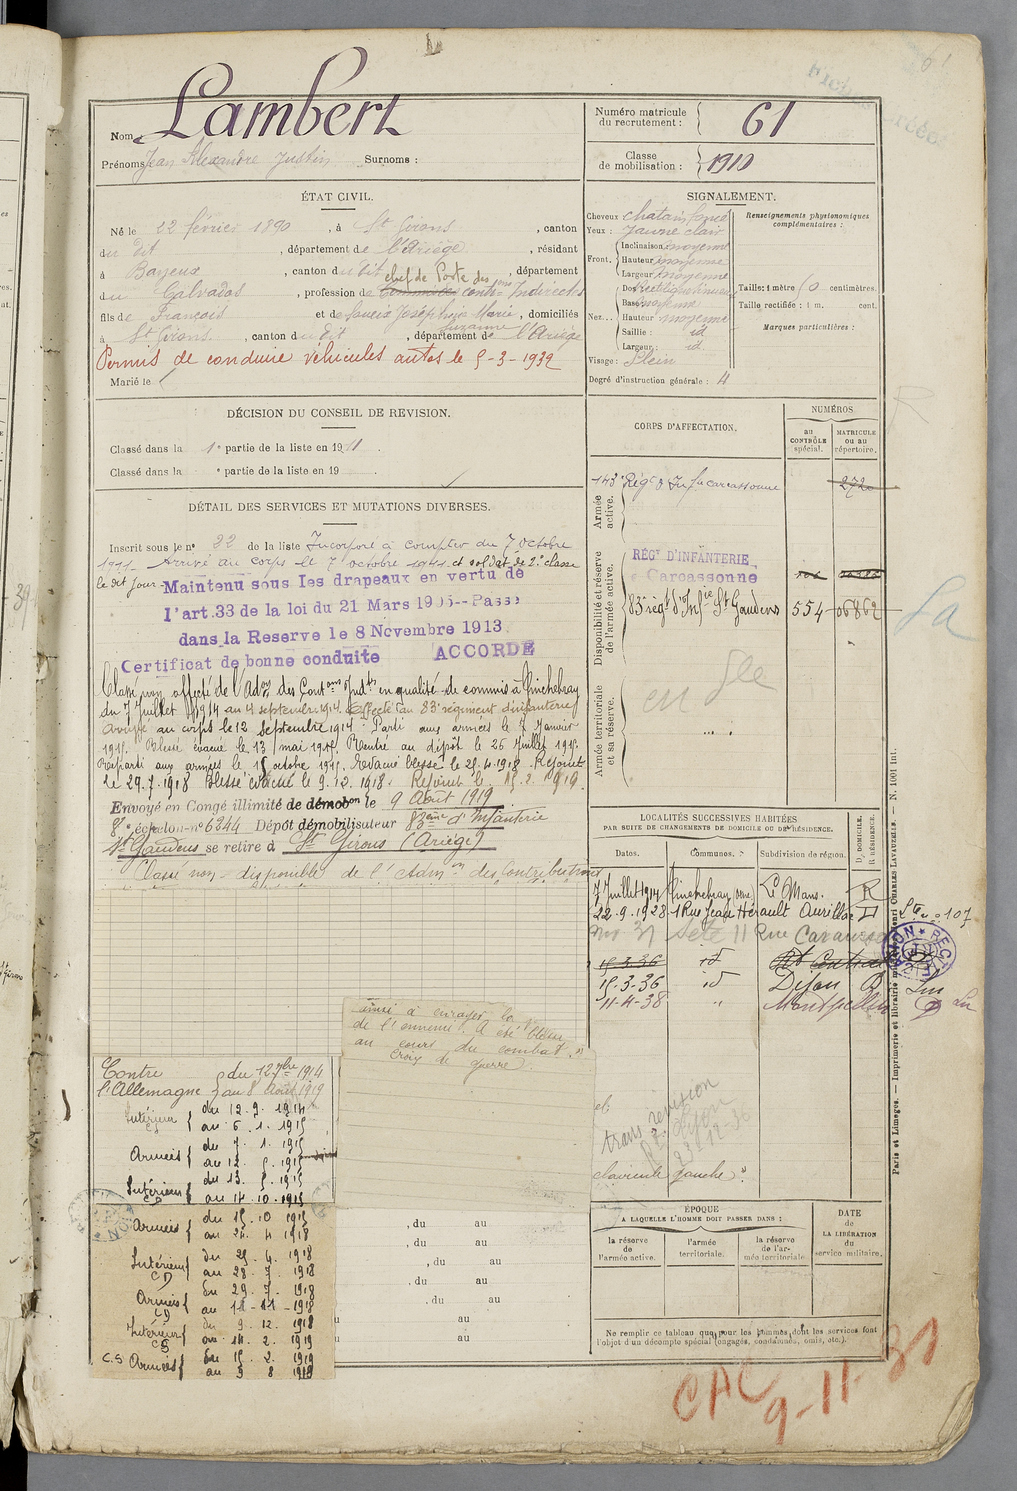 Nom Lambert
Prénoms Jean Alexandre Justin Surnoms :
Numéro matricule du recrutement : 61
Classe de mobilisation : 1910
ÉTAT CIVIL.
Né le 22 février 1890, à St Girons, canton
du dit, département de l'Ariège, résidant
à Bayeux, canton du dit, département
du Calvados, profession de chef de Poste des contons Indirectes
fils de François et de Joseph Marie Suzanne, domiciliés
à St Girons, canton du dit, département de l'Ariège
Permis de conduire véhicules autos le 5-3-1932
Marié le
DÉCISION DU CONSEIL DE REVISION.
Classé dans la 1e partie de la liste en 1911.
Classé dans la e partie de la liste en 19
DÉTAIL DES SERVICES ET MUTATIONS DIVERSES.
Inscrit sous le no 22 de la liste Incorporé à compter du 7 octobre
1911 Arrivé au corps le 7 octobre 1911 et soldat de 2e classe
le dit jour Maintenu sous les drapeaux en vertu de
l'art.33 de la loi du 21 Mars 1905--Passé
dans la Reserve le 8 Novembre 1913
Certificat de bonne conduite ACCORDÉ
Classé non affecté de l'Adon des Contons Indtes en qualité de commis à Tinchebray
du 7 Juillet 1914 au 4 septembre 1914. Affecté au 83e régiment d'infanterie
arrivé au corps le 12 septembre 1914. Parti aux armées le 7 Janvier
1915. Blessé évacué le 13 mai 1915. Rentré au dépôt le 26 Juillet 1915.
Reparti aux armées le 15 octobre 1915. Evacué blessé le 25.4.1918. Rejoint
le 29.7.1918 Blessé évacué le 9.12.1918. Rejoint le 15.2.1919.
Envoyé en Congé illimité de démobon le 9 Août 1919
8e échelon no 6244 Dépôt démobilisateur 83ème d'Infanterie
St Gaudens se retire à St Girons (Ariège)
Classé non-disponible de l'Admon des Contributions
ainsi à enrayer la
de l'ennemi. A été blessé
au cours du combat."
Croix de guerre.
Contre l'Allemagne du 12 7bre 1914 au 8 Août 1919
Intérieur du 12.9.1914
au 6.1.1915
Armées du 7.1.1915
au 12.5.1915
Intérieur du 13.5.1915
au 14.10.1915
Armées du 15.10.1915
au 24.4.1918
Intérieur du 25.4.1918
au 28.7.1918
Armées du 29.7.1918
au 11-11-1918
Intérieur du 9.12.1918
au 14.2.1919
C.S Armées du 15.2.1919
au 9 8 1919
, du au
, du au
, du au
, du au
au
au
SIGNALEMENT.
Cheveux chatain foncé
Yeux : jaune clair
Front. Inclinaison moyenne
Hauteur moyenne
Largeur moyenne
Nez... Dos rectiligne
Base moyenne
Hauteur moyenne
Saillie : id
Largeur : id.
Visage : Plein
Degré d'instruction générale : 4
Renseignements physionomiques complémentaires :
Taille : 1 mètre centimètres.
Taille rectifiée : 1 m. cent.
Marques particulières :
CORPS D'AFFECTATION.
NUMÉROS
au CONTRÔLE spécial.
MATRICULE ou au répertoire.
Armée active.
143e Régt d'Infie Carcassonne 2720
Disponibilité et réserve de l'armée active.
RÉGt D'INFANTERIE
Carcassonne
83e régt d'Infie St Gaudens 554 06862
Armée territoriale et sa réserve.
LOCALITÉS SUCCESSIVES HABITÉES
PAR SUITE DE CHANGEMENTS DE DOMICILE OU DE RÉSIDENCE.
Dates. Communes. Subdivision de région. D. DOMICILE. R. RÉSIDENCE.
7 Juillet 1914 Tinchebray (Orne) Le Mans. R
22.9.1928 1 Rue Jean Hérault Aurillac D
Sète 11 Rue
15.3.36 id Rt Central
15-3-36 id Dijon R
11-4-38 " Montpellier D
trans révision
Dijon
23-12-36
clavicule gauche".
ÉPOQUE
A LAQUELLE L'HOMME DOIT PASSER DANS :
la réserve de l'armée active.
l'armée territoriale.
la réserve de l'armée territoriale.
DATE de LA LIBÉRATION du service militaire.
Ne remplir ce tableau que pour les hommes dont les services font
l'objet d'un décompte spécial (engagés, condamnés, omis, etc.).
Paris et Limoges. — Imprimerie et librairie militaires Henri CHARLES-LAVAUZELLE. — N. 1001 int.
CAC
9-11-31